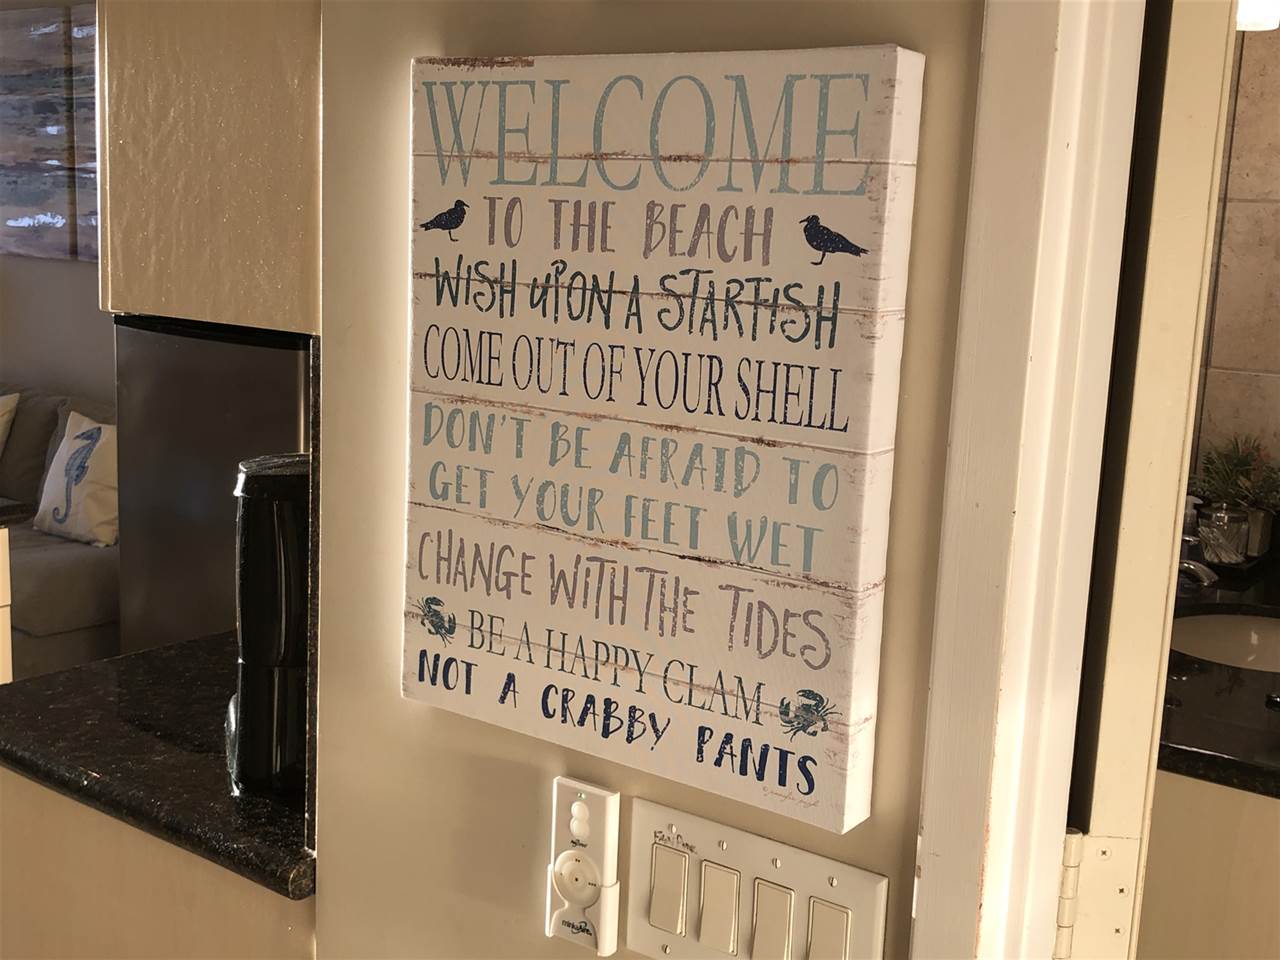 WELCOME
TO THE BEACH
WISH UPON A STARFISH
COME OUT OF YOUR SHELL
DON'T BE AFRAID TO
GET YOUR FEET WET
CHANGE WITH THE TIDES
BE A HAPPY CLAM
NOT A CRABBY PANTS
minkaAire